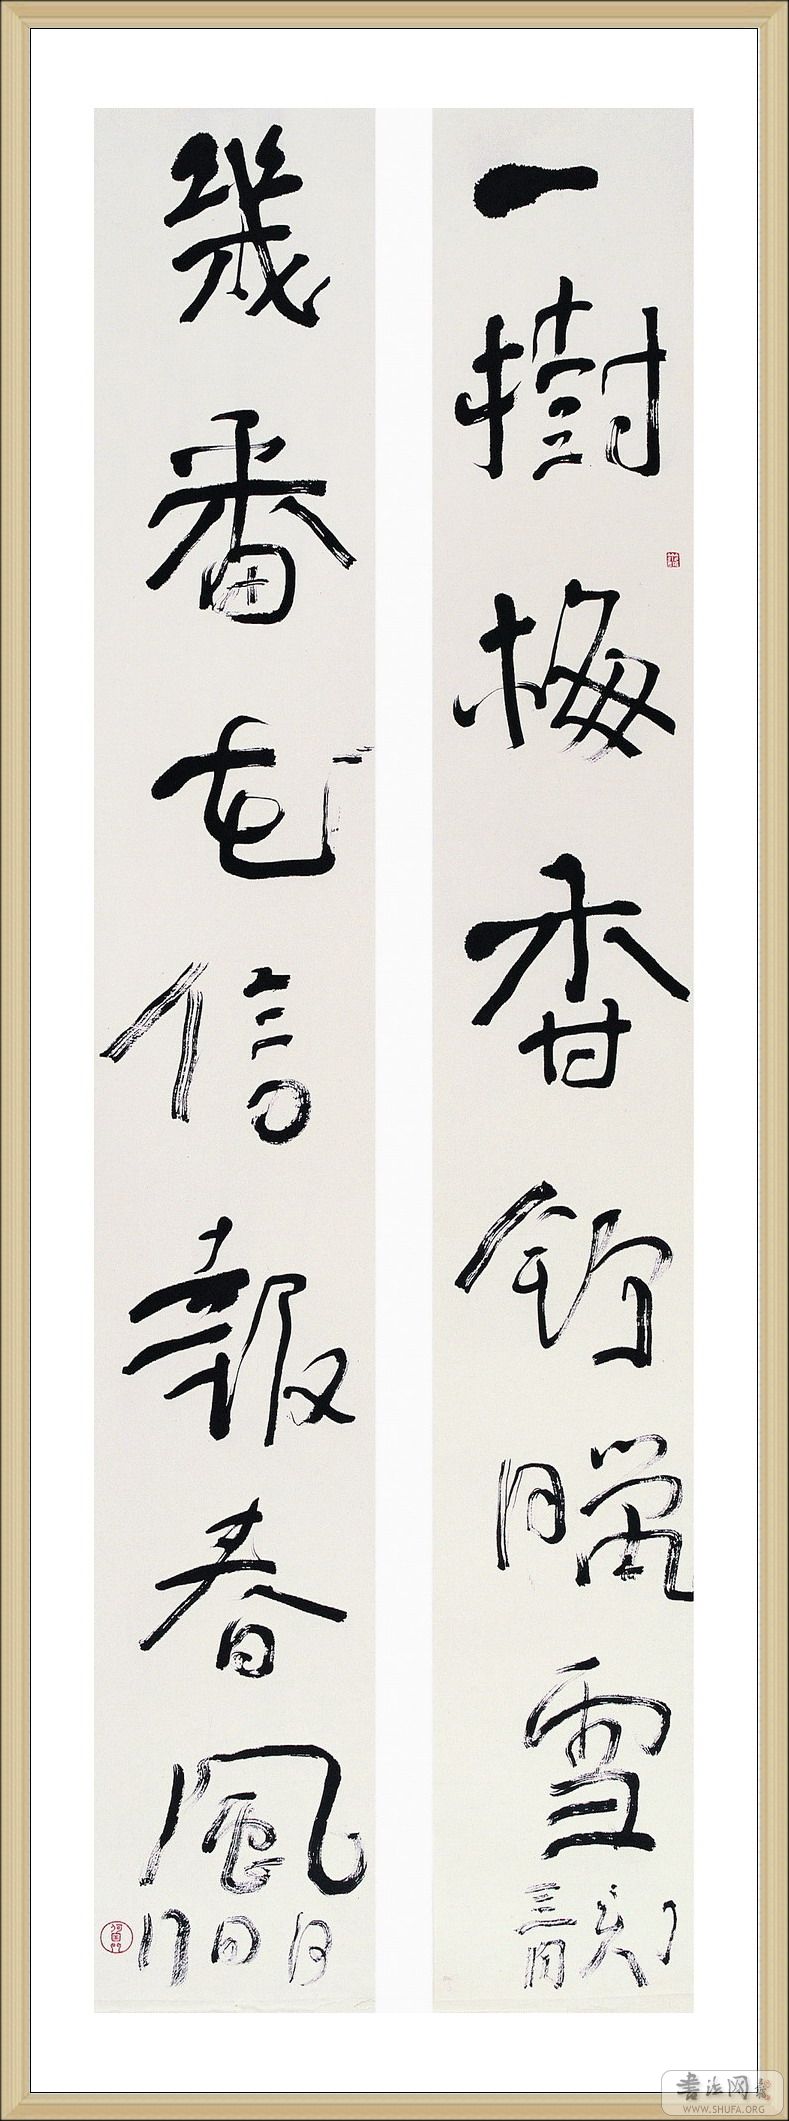 一樹梅香節臘雪
幾番花信報春風
書法网
WWW.SHUFA.ORG